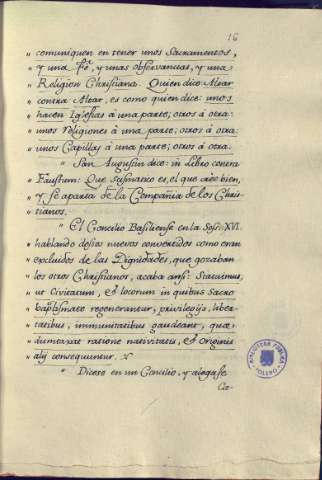 16
" comuniquen en tener unos Sacramentos,
" y una fe, y unas observancias, y una
" Religion Christiana. Quien dice Altar
" contra Altar, es como quien dice: unos
" hacen Iglesias à una parte, otros à otra:
" unos religiones à una parte; otros à otra:
" unos Capillas à una parte; otros à otra.
" San Augustin dice: in Libro contra
" Faustum: Que Scismatico es, el que cree bien,
" y se aparta de la Compañia de los Chris-
" tianos.
" El Concilio Basiliense en la Sess. XVI.
" hablando destos nuevos convertidos como eran
" excluidos de las Dignidades, que gozaban
" los otros Christianos, acaba ansi: Statuimus,
" ut Civitatum, & locorum in quibus Sacro
" baptismate regenerantur, privilegijs, liber-
" tatibus, immunitatibus gaudeant, quæ
" dumtaxat ratione nativitatis, & originis
" alij consequuntur.
" Dicese en un Concilio, y alegase
Ca-
BIBLIOTECA PUBLICA
TOLEDO